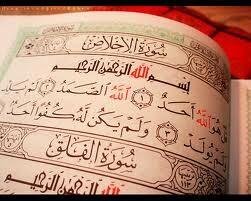 سُورَةُ الْإِخْلَاصِ
بِسْمِ اللَّهِ الرَّحْمَٰنِ الرَّحِيمِ
قُلْ هُوَ اللَّهُ أَحَدٌ ۝١ اللَّهُ الصَّمَدُ ۝٢ لَمْ يَلِدْ
وَلَمْ يُولَدْ ۝٣ وَلَمْ يَكُن لَّهُ كُفُوًا أَحَدٌ
سُورَةُ الْفَلَقِ
اللَّهِ الرَّحْمَٰنِ الرَّحِيمِ